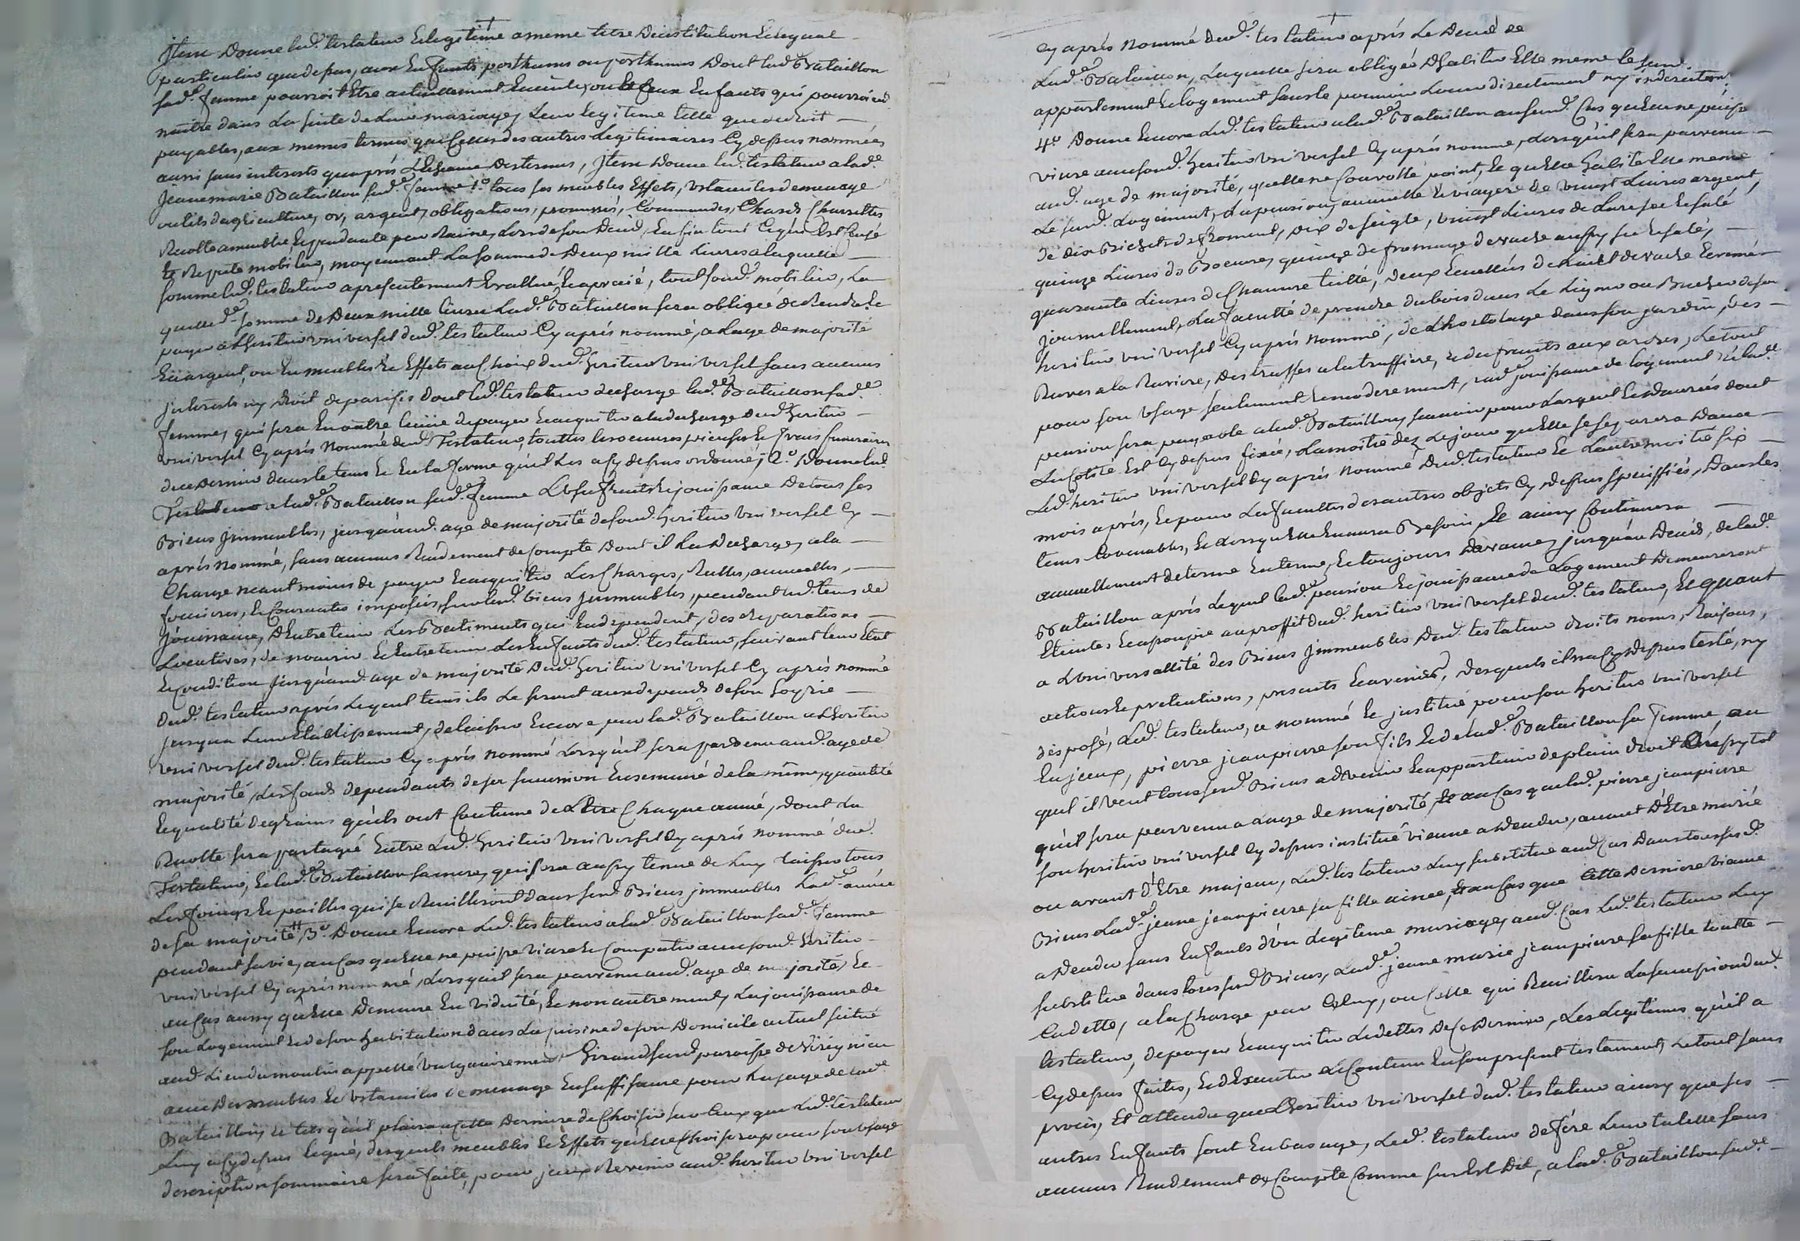 Jtem Donne led. testateur Et legitime a meme titre Dinstitution Et legual
particulier que dessus, aux Enfants posthumes ou posthume Dont lad.e Bataillon
sad.e femme pourroit Etre actuellement Enceinte, ou Ceux Enfants qui pourroient
naitre dans La suite de Leur mariage, Leur legitime telle que de droit —
payables, aux memes termes que Celles des autres legitimaires Cy dessus nommées
aussi sans interets qu'aprés L'Echeance des termes, Jtem Donne led. testateur a lad.e
Jeanne marie Bataillon sad.e femme 1.o tous ses meubles Effets, Ustancilles de menage
outils d'agriculture, or, argent, obligations, promesses, Commandes, Chards Charrettes
Recolte ameublie Et pendante par Racines, Lors de son Decés, Enfin tout Ce qui Est Censé
Et Reputé mobilier, moyennant La somme de Deux mille Livres a laquelle —
somme led. testateur a presentement Evallué, Et aprecié, tout sond. mobilier, La
quelle d.e somme de Deux mille Livres Lad.e Bataillon sera obligée de Rendre Et
payer a L'heritier universel dud. testateur Cy aprés nommé, a L'age de majorité
En argent, ou En meubles Et Effets au Choix dud. heritier universel sans aucuns
jnterets ny Droit de parisis dont led. testateur decharge lad.e Bataillon sad.e
femme, qui sera En outre tenue de payer Et acquitter a la decharge dud. heritier —
universel Cy aprés Nommé dud. Testateur, touttes les oeuvres pieuses Et frais funeraires
de ce Dernier dans le tems Et En la forme qu'il Les a Cy dessus ordonné; 2.o Donne led.
Testateur a lad.e Bataillon sad.e femme L'usufruit Et jouissance De tous ses
Biens Jmmeubles, jusqu'aud. age de majorité de sond. heritier universel Cy —
aprés nommé, sans aucuns Rendement de Compte Dont il La Decharge, a la —
Charge neantmoins de payer Et acquitter Les Charges, Reelles, annuelles, —
foncieres, Et Courantes imposées sur lesd. biens Jmmeubles, pendant led. tems de
Jouissance, D'Entretenir Les Batiments qui En dependent, des reparations —
Locatives, de nourrir Et Entretenir Les Enfants dud. testateur, suivant leur Etat
Et Condition jusqu'aud. age de majorité Dud. heritier universel Cy aprés nommé
Dud. testateur aprés lequel tems ils Le seront aux depends de son hoyrie —
jusqu'a Leur Etablissement, delaissera Encore par lad.e Bataillon a L'heritier
universel dud. testateur Cy aprés nommé Lorsqu'il sera parvenu aud. age de
majorité, Les fonds dependants de sa succession Ensemencé de la même, quantité
Et qualité de grains qu'ils ont Coutume de L'Etre Chaque année, dont La
Recolte sera partagée Entre Led. heritier universel Cy aprés nommé dud.
Testateur, Et lad.e Bataillon sa mere, qui sera aussy tenue de Luy laisser tous
Les foins Et pailles qui se Recuilliront dans sesd. Biens jmmeubles Lad.e année
de sa majorité; 3.o Donne Encore Led. testateur a lad.e Bataillon sad.e femme
pendant sa vie, au Cas qu'Elle ne puisse vivre Et Compatir avec sond. heritier —
universel Cy aprés nommé, Lorsqu'il sera parvenu aud. age de majorité, Et —
au Cas aussy qu'Elle Demeure En viduité, Et non autrement, La jouissance de
son Logement Et de son habitation dans La Cuisine de son Domicile actuel scitué
aud. Lieu du moulin appellé vulgairement Giraud susd. paroisse de Virignieu
avec Des meubles Et Ustancilles de menage En suffisance pour L'usage de lad.e
Bataillon, Et tels qu'il plaira a Cette Derniere de Choisir sur Ceux que Led. testateur
Luy a Cy dessus legué, desquels meubles Et Effets qu'Elle Choisira pour son Usage
description sommaire sera faite, pour jceux Revenir aud. heritier universel
Cy aprés Nommé Dud. testateur aprés Le Decés de
Lad.e Bataillon, Laquelle sera obligée D'habiter Elle meme le susd.
appartement Et logement sans le pouvoir Louer directement ny indirectement,
4.o Donne Encore Led. testateur a lad.e Bataillon au susd. Cas qu'Elle ne puisse
vivre avec sond. heritier universel Cy aprés nommé, Lorsqu'il sera parvenu —
aud. age de majorité, qu'Elle ne Convolle point, Et qu'Elle habite Elle meme
Le susd. Logement, La pension annuelle Et viagere de vingt Livres argent,
de dix Bichets de froment, dix de seigle, vingt Livres de Lard sec Et salé,
quinze Livres de Boeure, quinze de fromage de vache aussy sec Et salé, —
quarante Livres de Chanvre teillé, deux Ecuellées de Laict de vache Ecremé
journellement, La faculté de prendre du bois dans Le Ligner ou Bucher de son
heritier universel Cy aprés nommé, de L'hortolage dans son jardin, des —
Raves a la Raviere, Des truffes a la truffiere, Et des fruits aux arbres, Le tout
pour son Usage seulement Et moderement, lad.e jouissance de logement Et lad.e
pension sera payable a lad.e Bataillon, sçavoir pour L'argent Et denrées dont
La quotité Est Cy dessus fixée, La moitié dez Le jour qu'Elle se separera D'avec —
Led. heritier universel Cy aprés Nommé Dud. testateur Et L'autre moitié six —
mois aprés, Et pour Les facultés des autres objets Cy dessus specifiées, Dans les
tems Convenables, Et Lorsqu'Elle En aura Besoin, Et ainsy Continuera —
annuellement de terme En terme, Et toujours D'avance, jusqu'au Decés, de lad.e
Bataillon aprés Lequel lad.e pension Et jouissance de Logement Demeureront
Eteintes Et assoupies au proffit dud. heritier universel dud. testateur, Et quant
a L'universallité des Biens jmmeubles Dud. testateur droits noms, Raisons,
actions Et pretentions, presents Et avenirs, desquels il n'a Cy dessus testé, ny
disposé, Led. testateur, a nommé Et jnstitué pour son heritier universel
En jceux, pierre jeanpierre son fils Et de lad.e Bataillon sa femme, au
quel il veut tous sesd. Biens advenir Et appartenir de plain droit
qu'il sera parvenu a L'age de majorité, Et au Cas que led. pierre jeanpierre
son heritier universel Cy dessus institué vienne a Deceder, avant D'Etre marié
ou avant D'Etre majeur, Led. testateur Luy substitue aud. Cas Dans tous sesd.
Biens Lad.e jeanne jeanpierre sa fille ainée, Et au Cas que Cette Derniere vienne
a Deceder sans Enfants d'un Legitime mariage, aud. Cas Led. testateur Luy
substitue dans tous sesd. Biens, Lad.e jeanne marie jeanpierre sa fille Cadette —
Cadette, a la Charge par Celuy, ou Celle qui Recuillira La succession dud.
testateur, de payer Et acquitter Les dettes De Ce Dernier, Les Legitimes qu'il a
Cy dessus faites, Et d'Executer Le Contenu En son present testament, Le tout sans
procés, Et attendu que L'heritier universel dud. testateur ainsy que ses —
autres Enfants sont En bas age, Led. testateur defére Leur tutelle sans
aucuns Rendement de Compte Comme sus Est Dit, a lad.e Bataillon sad.e —